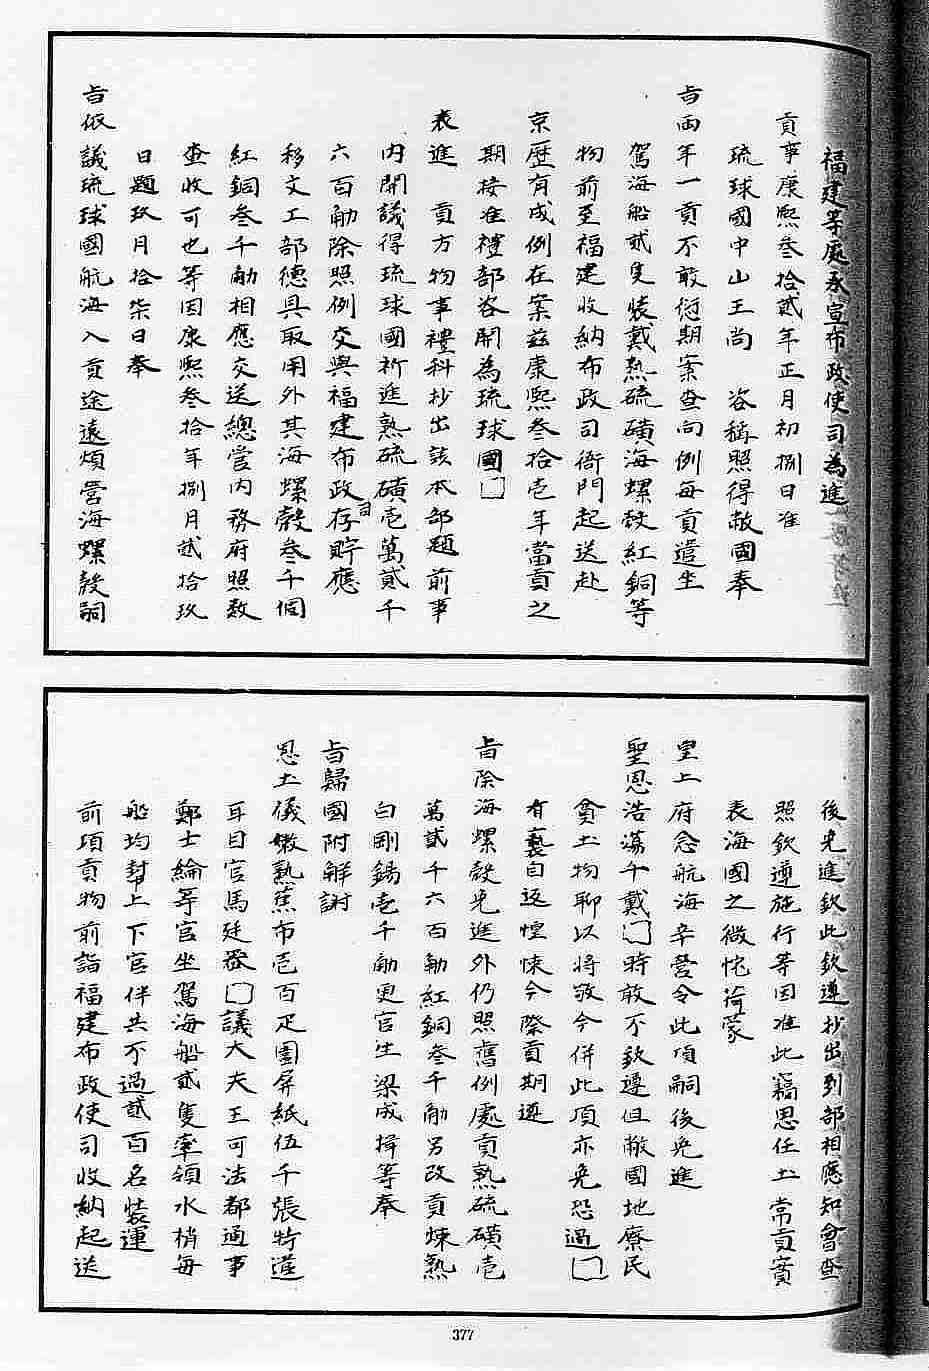 福建等處承宣布政使司為進
貢事康熙叁拾貳年正月初捌日准
琉球國中山王尚　咨稱照得敝國奉
旨兩年一貢不敢愆期案查向例每貢遣坐
駕海船貳隻裝載熟硫磺海螺殼紅銅等
物前至福建收納布政司衙門起送赴
京歷有成例在案茲康熙叁拾壹年當貢之
期按准禮部咨開為琉球國□
表進　貢方物事禮科抄出該本部題前事
內開議得琉球國祈進熟硫磺壹萬貳千
六百觔除照例交與福建布政司存貯應
移文工部德具取用外其海螺殼叁千個
紅銅叁千觔相應交送總管內務府照數
查收可也等因康熙叁拾年捌月貳拾玖
日題玖月拾柒日奉
旨依議琉球國航海入貢途遠煩勞海螺殼嗣
後免進欽此欽遵抄出到部相應知會查
照欽遵施行等因准此竊思任土常貢實
表海國之微忱荷蒙
皇上府念航海辛勞令此項嗣後免進
聖恩浩蕩千戴□時敢不欽遵但敝國地瘠民
貧土物聊以將敬今併此項亦免恐過□
有褻自返惶悚今際貢期遵
旨除海螺殼免進外仍照舊例處貢熟硫磺壹
萬貳千六百觔紅銅叁千觔另改貢煉熟
白剛錫壹千觔更官生梁成揖等奉
旨歸國附解謝
恩土儀嫩熟蕉布壹百疋圍屏紙伍千張特遣
耳目官馬廷器□議大夫王可法都通事
鄭士綸等官坐駕海船貳隻率領水梢每
船均幇上下官伴共不過貳百名裝運
前項貢物前詣福建布政使司收納起送
377